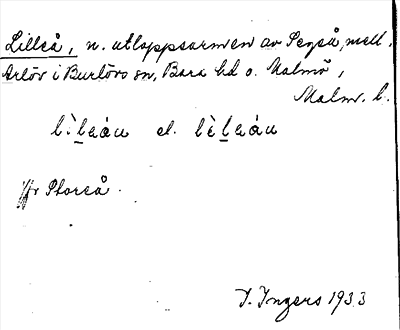 Lilleå, n. utloppsarmen av Segeå, mell.
Arlöv i Burlövs sn, Bara hd o. Malmö,
Malm. l.
el.
Jfr Storeå.
I. Ingers 1933